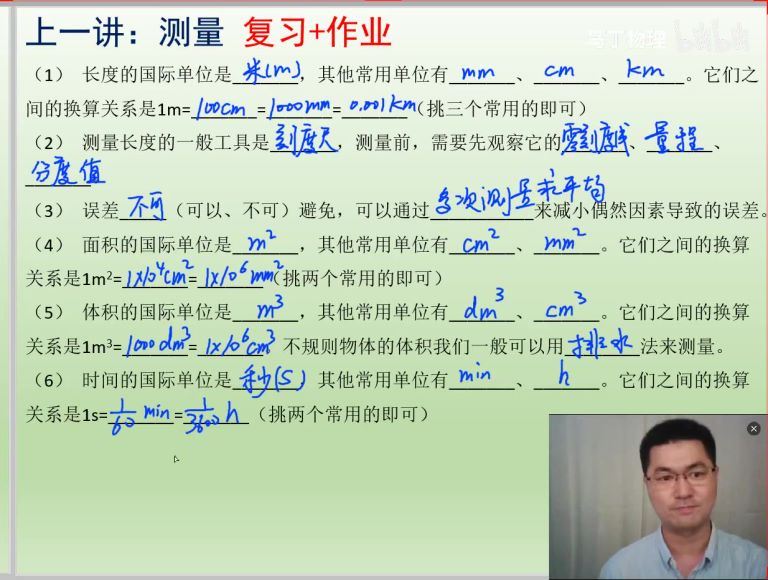 上一讲：测量 复习+作业
马丁物理 bilibili
（1） 长度的国际单位是 米(m)，其他常用单位有 mm、 cm、 km。它们之
间的换算关系是1m= 100cm = 1000mm = 0.001km（挑三个常用的即可）
（2） 测量长度的一般工具是刻度尺，测量前，需要先观察它的零刻度线、量程、
分度值
（3） 误差 不可（可以、不可）避免，可以通过多次测量求平均来减小偶然因素导致的误差。
（4） 面积的国际单位是 m²，其他常用单位有 cm²、 mm²。它们之间的换算
关系是1m²= 1×10⁴cm² = 1×10⁶mm²（挑两个常用的即可）
（5） 体积的国际单位是 m³，其他常用单位有 dm³、 cm³。它们之间的换算
关系是1m³= 1000dm³ = 1×10⁶cm³ 不规则物体的体积我们一般可以用 排水 法来测量。
（6） 时间的国际单位是 秒(s)，其他常用单位有 min、 h。它们之间的换算
关系是1s= 1/60 min = 1/3600 h（挑两个常用的即可）